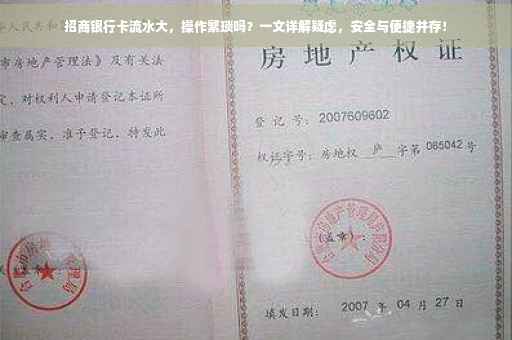 招商银行卡流水大，操作繁琐吗？一文详解疑虑，安全与便捷并存！
华人民共和国
市房地产管理法》及有关法
定，对权利人申请登记本证所
审查属实，准予登记，特发此
房地产权证
登记号：2007609602
权证字号：房地权 庐 字第 065042 号
(盖章)：
填发日期：2007 年 04 月 27 日